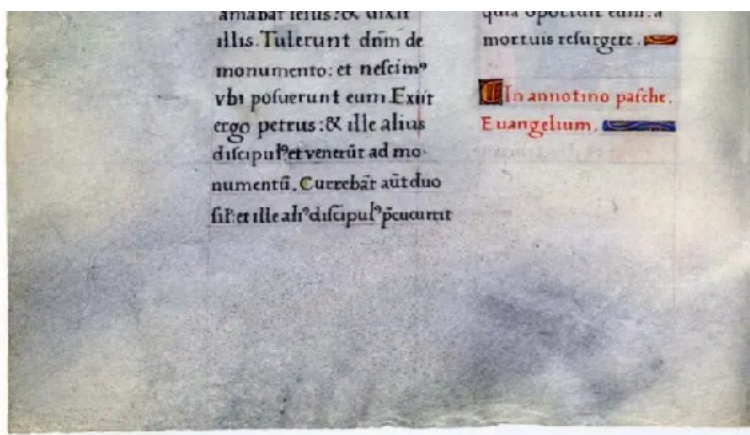 amabat iesus: & dixit
illis. Tulerunt dn̄m de
monumento: et nescimꝰ
vbi posuerunt eum. Exiit
ergo petrus: & ille alius
discipulꝰ et venerūt ad mo-
numentū. Currebāt aūt duo
sil̄ et ille aliꝰ discipulꝰ p̄cucurrit
quia oportuit eum. a
mortuis resurgere.
In annotino pasche.
Euangelium.